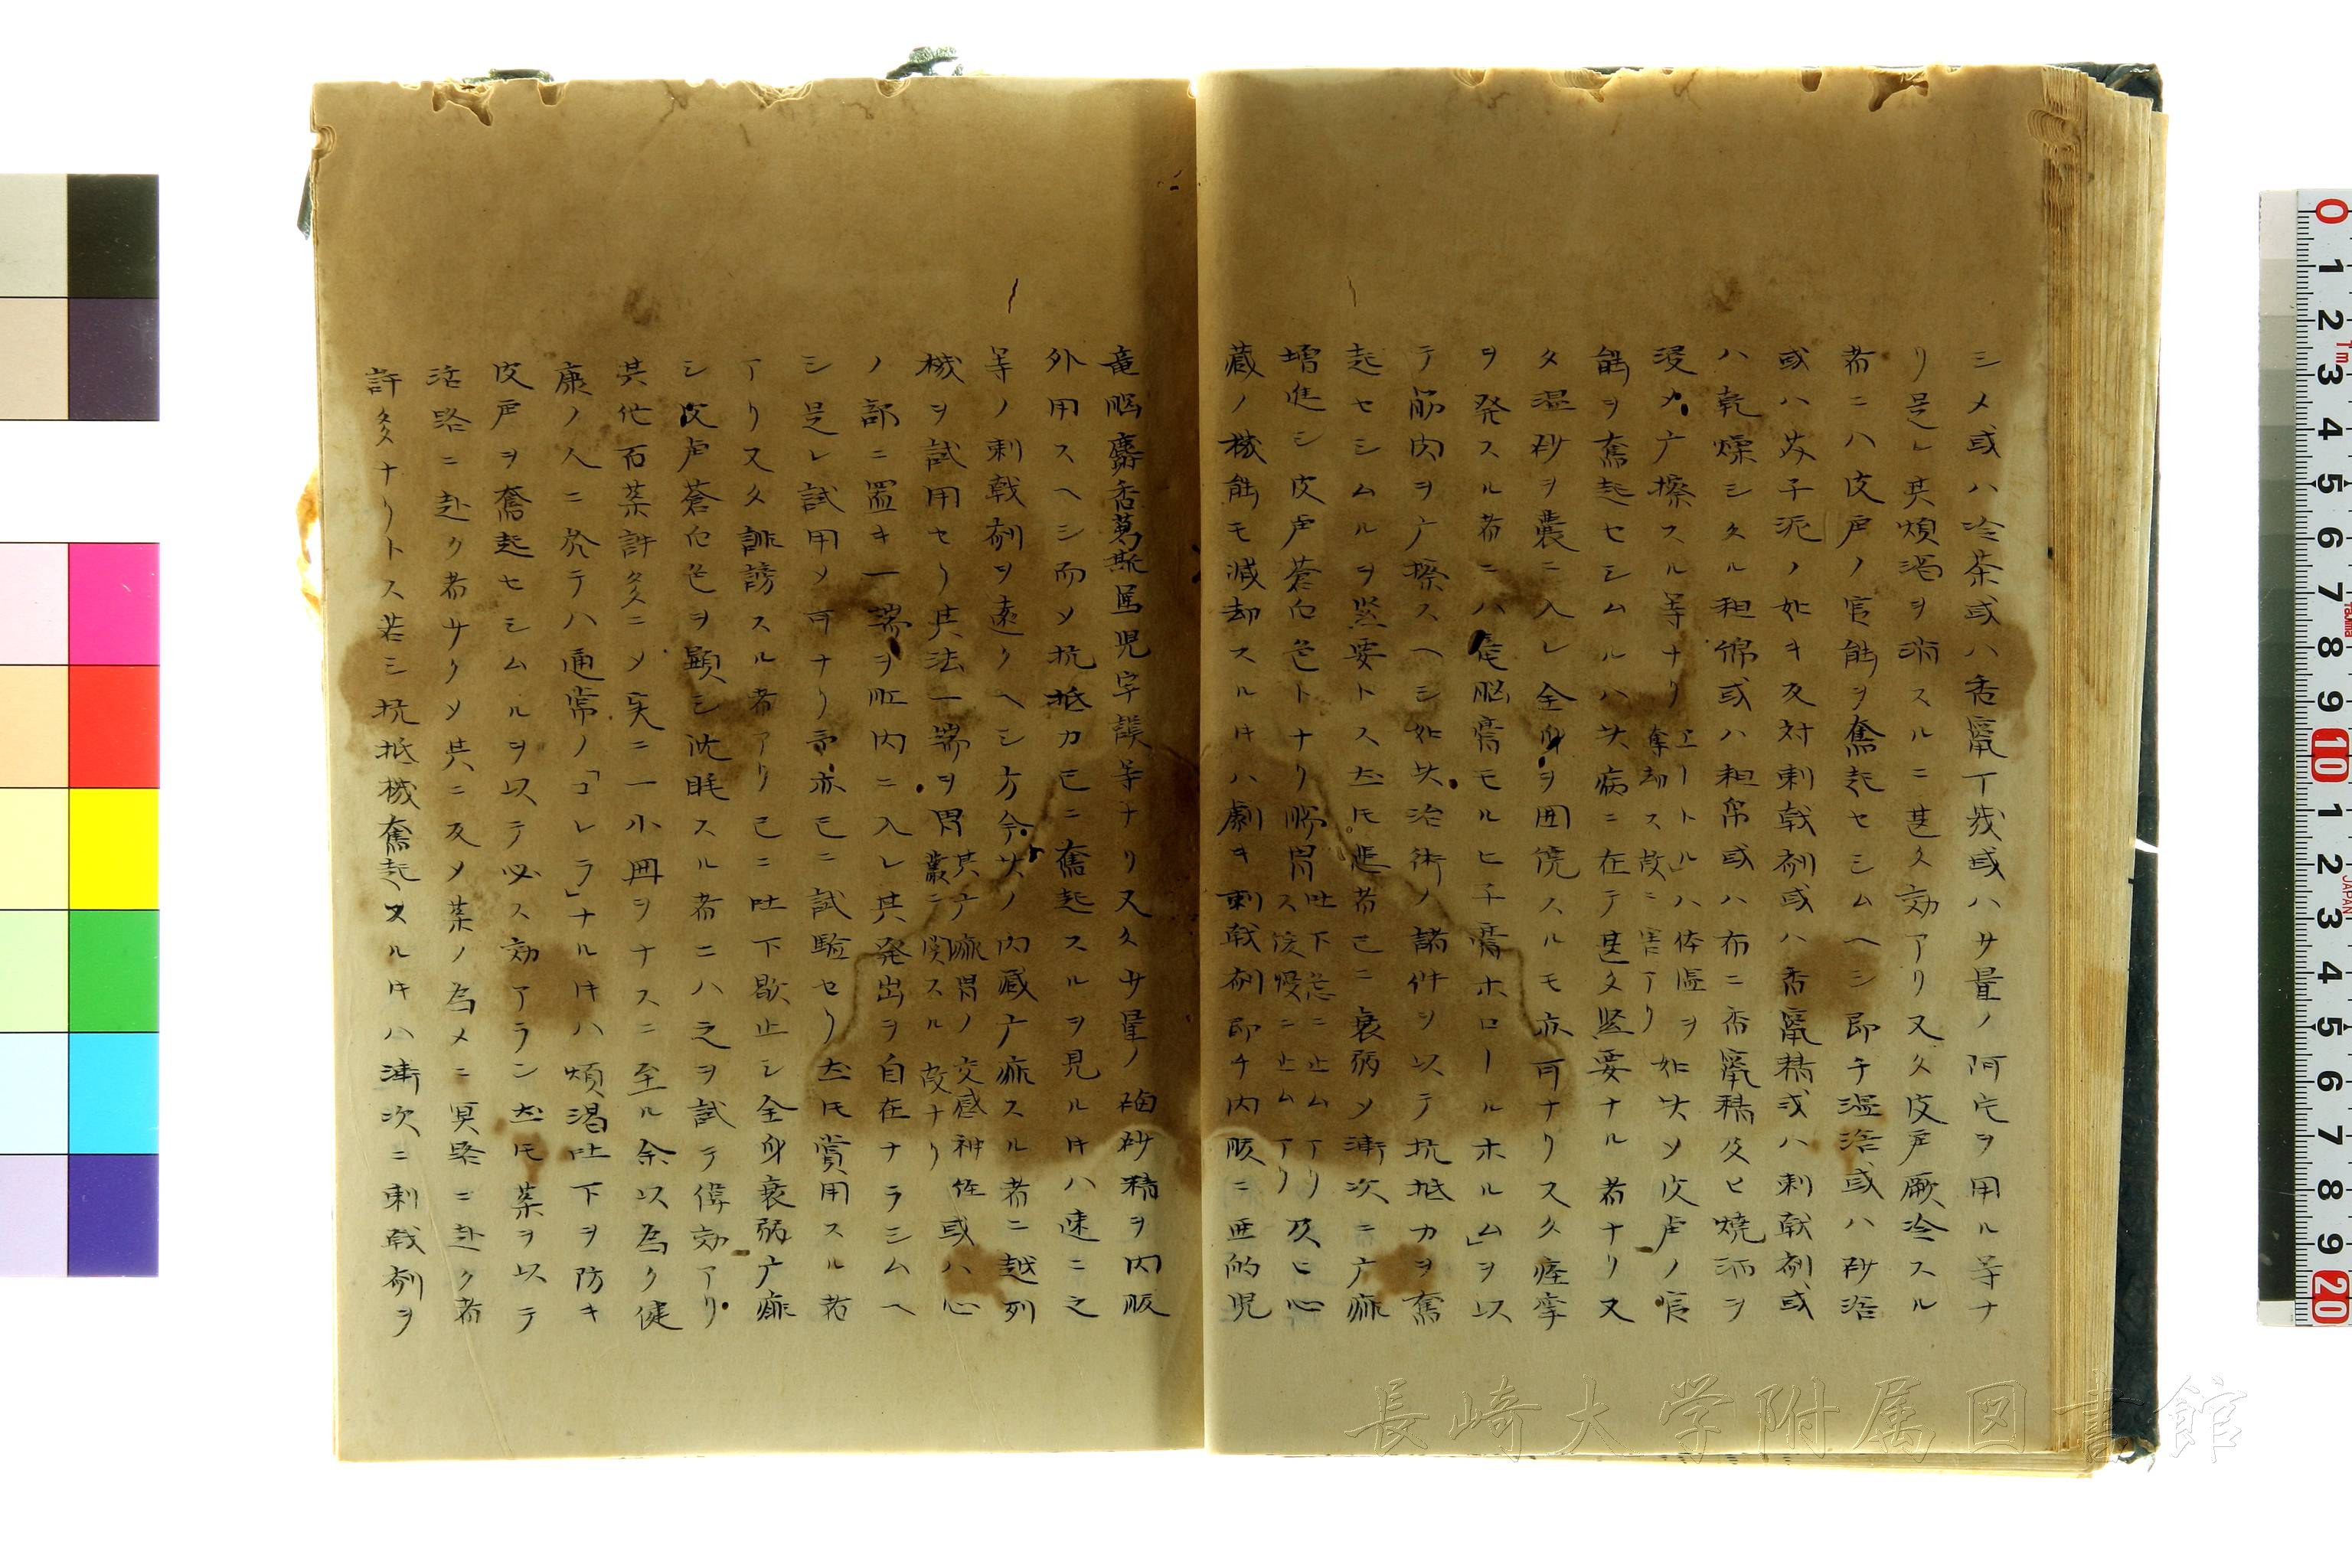 シメ或ハ冷茶或ハ香竄丁幾或ハサ量ノ阿片ヲ用ル等ナ
リ是レ其煩渇ヲ消スルニ甚タ効アリ又久皮戸厥冷スル
者ニハ皮戸ノ官能ヲ奮起セシムヘシ即チ湿浴或ハ砂浴
或ハ芥子泥ノ如キ反対刺戟剤或ハ香竄精或ハ刺戟剤或
ハ乾燥シタル粗綿或ハ粗帛或ハ布ニ香竄精及ヒ焼酒ヲ
浸メ广擦スル等ナリ
エートル」ハ体温ヲ
奪却ス故ニ害アリ
如此メ皮戸ノ官
能ヲ奮起セシムルハ此病ニ在テ甚タ緊要ナル者ナリ又
タ湿砂ヲ嚢ニ入レ全身ヲ囲僥スルモ亦可ナリ又久痙挛
ヲ発スル者ニハ 脳膏モルヒ子膏ホロールホルム」ヲ以
テ筋肉ヲ广擦スヘシ如此治術ノ諸件ヲ以テ抗抵カヲ奮
起セシムルヲ緊要トス圧モ患者已ニ衰弱メ漸次ニ广痲
増進シ皮戸蒼白色トナリ腸胃
吐下忘ニ止ムアリ
ス後ニ止ムアリ
及ヒ心
蔵ノ機能モ減却スル片ハ劇キ刺戟剤即チ内服ニ亜的児
竜脳麝香葛斯篤児宇謨等ナリ又久サ量ノ 砂精ヲ内服
外用スヘシ而メ抗抵カ已ニ奮起スルヲ見ル片ハ速ニ之
等ノ刺戟剤ヲ遠クヘシ方今此ノ内蔵广痲スル者ニ越列
機ヲ試用セリ其法一端ヲ胃
其广痲胃ノ交感神経
叢ニ関スル故ナリ
或ハ心
ノ部ニ置キ一端ヲ肛内ニ入レ其発出ヲ自在ナラシムヘ
シ是レ試用メ可ナリ予亦已ニ試驗セリ圧モ賞用スル者
アリ又久誹謗スル者アリ已ニ吐下歇止シ全身衰弱广痲
シ皮戸蒼白色ヲ顕シ沈眠スル者ニハ之ヲ試テ偉効アリ
其他石薬許多ニメ実ニ一小冊ヲナスニ至ル余以為ク健
康ノ人ニ於テハ通常ノ「コレラ」ナル片ハ煩渇吐下ヲ防キ
皮戸ヲ奮起セシムルヲ以テ必ス効アラン圧モ薬ヲ以テ
活路ニ赴ク者サクメ共ニ反メ薬ノ為メニ冥路ニ赴ク者
許多ナリトス若シ抗抵機奮起スル片ハ漸次ニ刺戟剤ヲ
長崎大学附属図書館